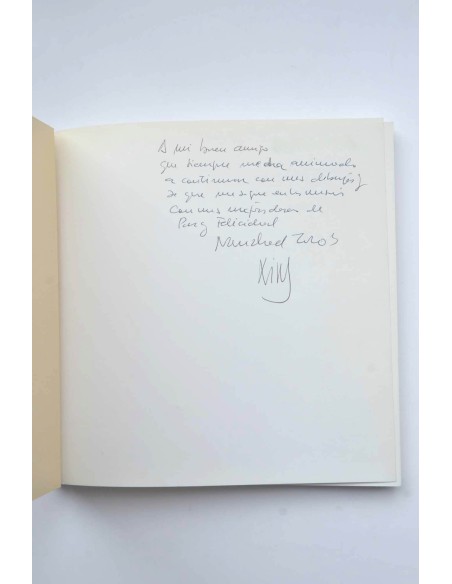 A mi buen amigo
que siempre me ha animado
a continuar con mis dibujos y
de que me
Con mis mejores deseos de
Paz y Felicidad
Navidad 2003